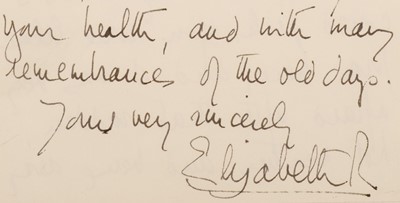 your health, and with many
remembrances of the old days.
Yours very sincerely
Elizabeth R